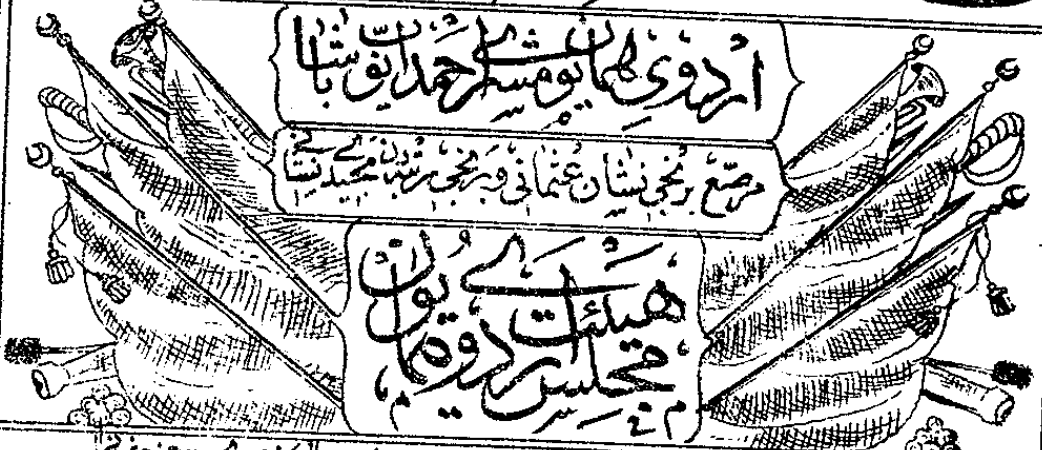 اردوی همایون مشیری احمد ایوب پاشا
مرصع برنجی نشان عثمانی و برنجی رتبه‌دن مجیدی نشانی
هیئت
مجلس اردوی همایون